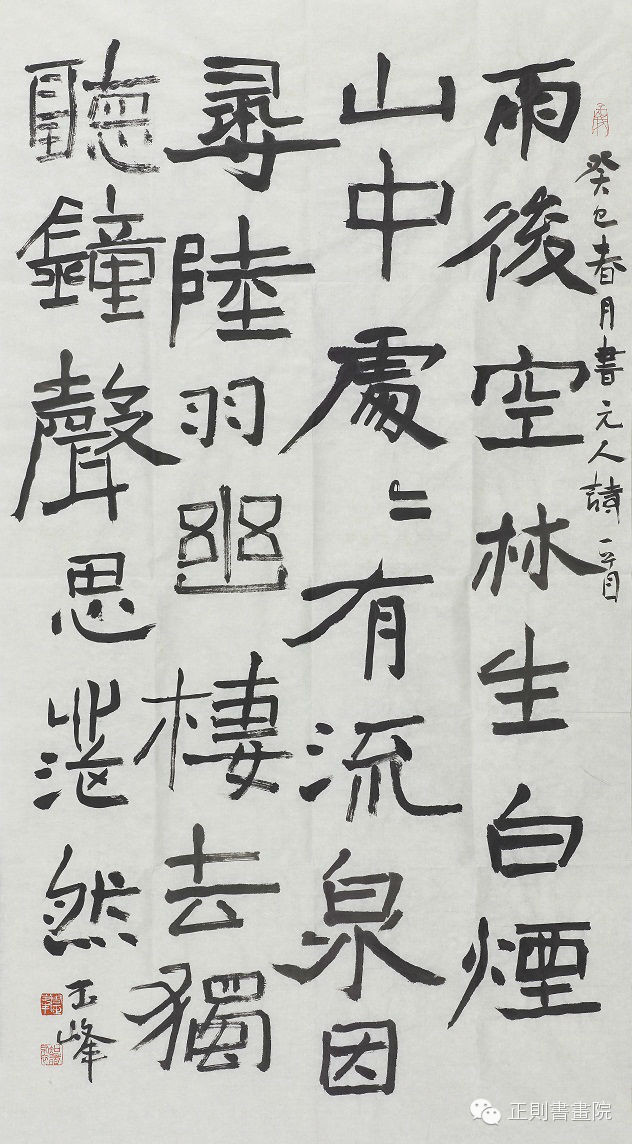 癸巳春月書元人詩一首
雨後空林生白煙
山中處〻有流泉因
尋陸羽幽棲去獨
聽鐘聲思茫然
玉峰
正則書畫院